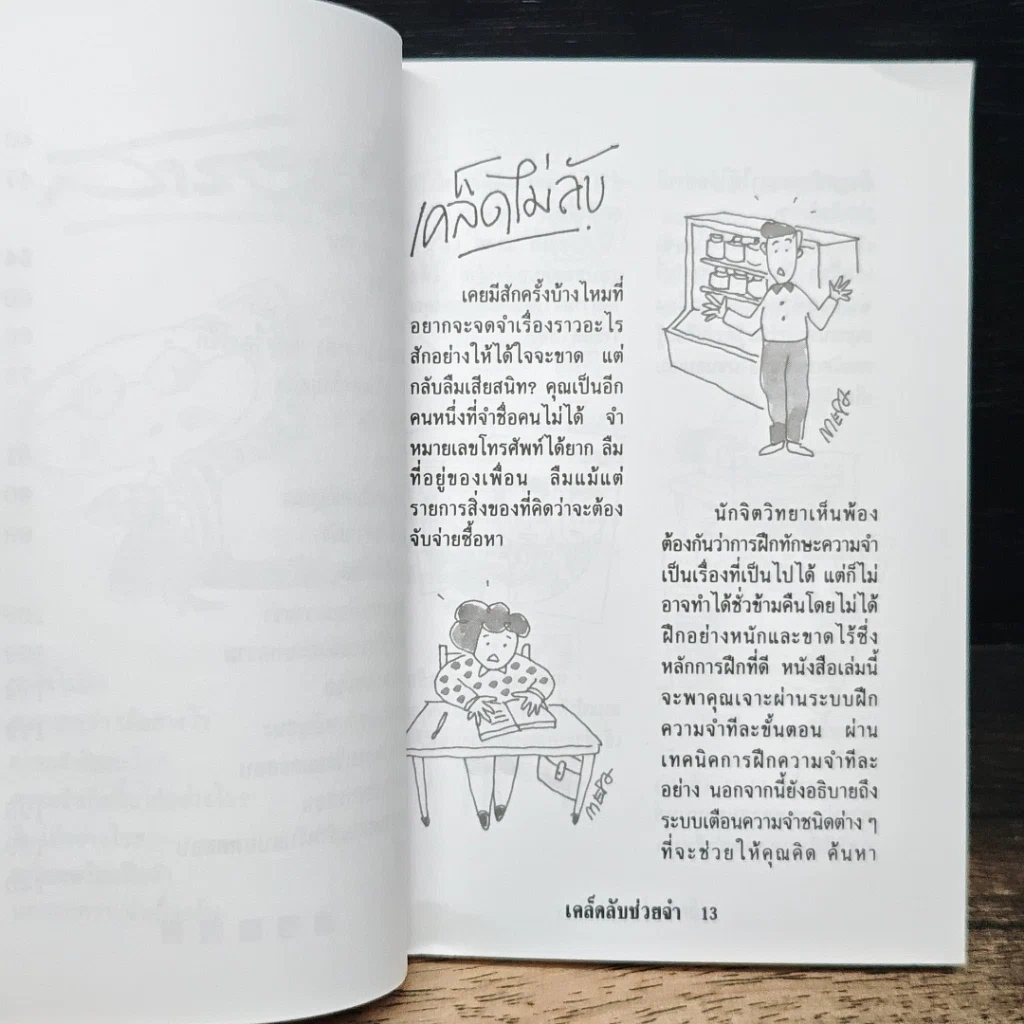 เคล็ดไม่ลับ
เคยมีสักครั้งบ้างไหมที่
อยากจะจดจำเรื่องราวอะไร
สักอย่างให้ได้ใจจะขาด แต่
กลับลืมเสียสนิท? คุณเป็นอีก
คนหนึ่งที่จำชื่อคนไม่ได้ จำ
หมายเลขโทรศัพท์ได้ยาก ลืม
ที่อยู่ของเพื่อน ลืมแม้แต่
รายการสิ่งของที่คิดว่าจะต้อง
จับจ่ายซื้อหา
นักจิตวิทยาเห็นพ้อง
ต้องกันว่าการฝึกทักษะความจำ
เป็นเรื่องที่เป็นไปได้ แต่ก็ไม่
อาจทำได้ชั่วข้ามคืนโดยไม่ได้
ฝึกอย่างหนักและขาดไร้ซึ่ง
หลักการฝึกที่ดี หนังสือเล่มนี้
จะพาคุณเจาะผ่านระบบฝึก
ความจำทีละขั้นตอน ผ่าน
เทคนิคการฝึกความจำทีละ
อย่าง นอกจากนี้ยังอธิบายถึง
ระบบเตือนความจำชนิดต่าง ๆ
ที่จะช่วยให้คุณคิด ค้นหา
เคล็ดลับช่วยจำ 13